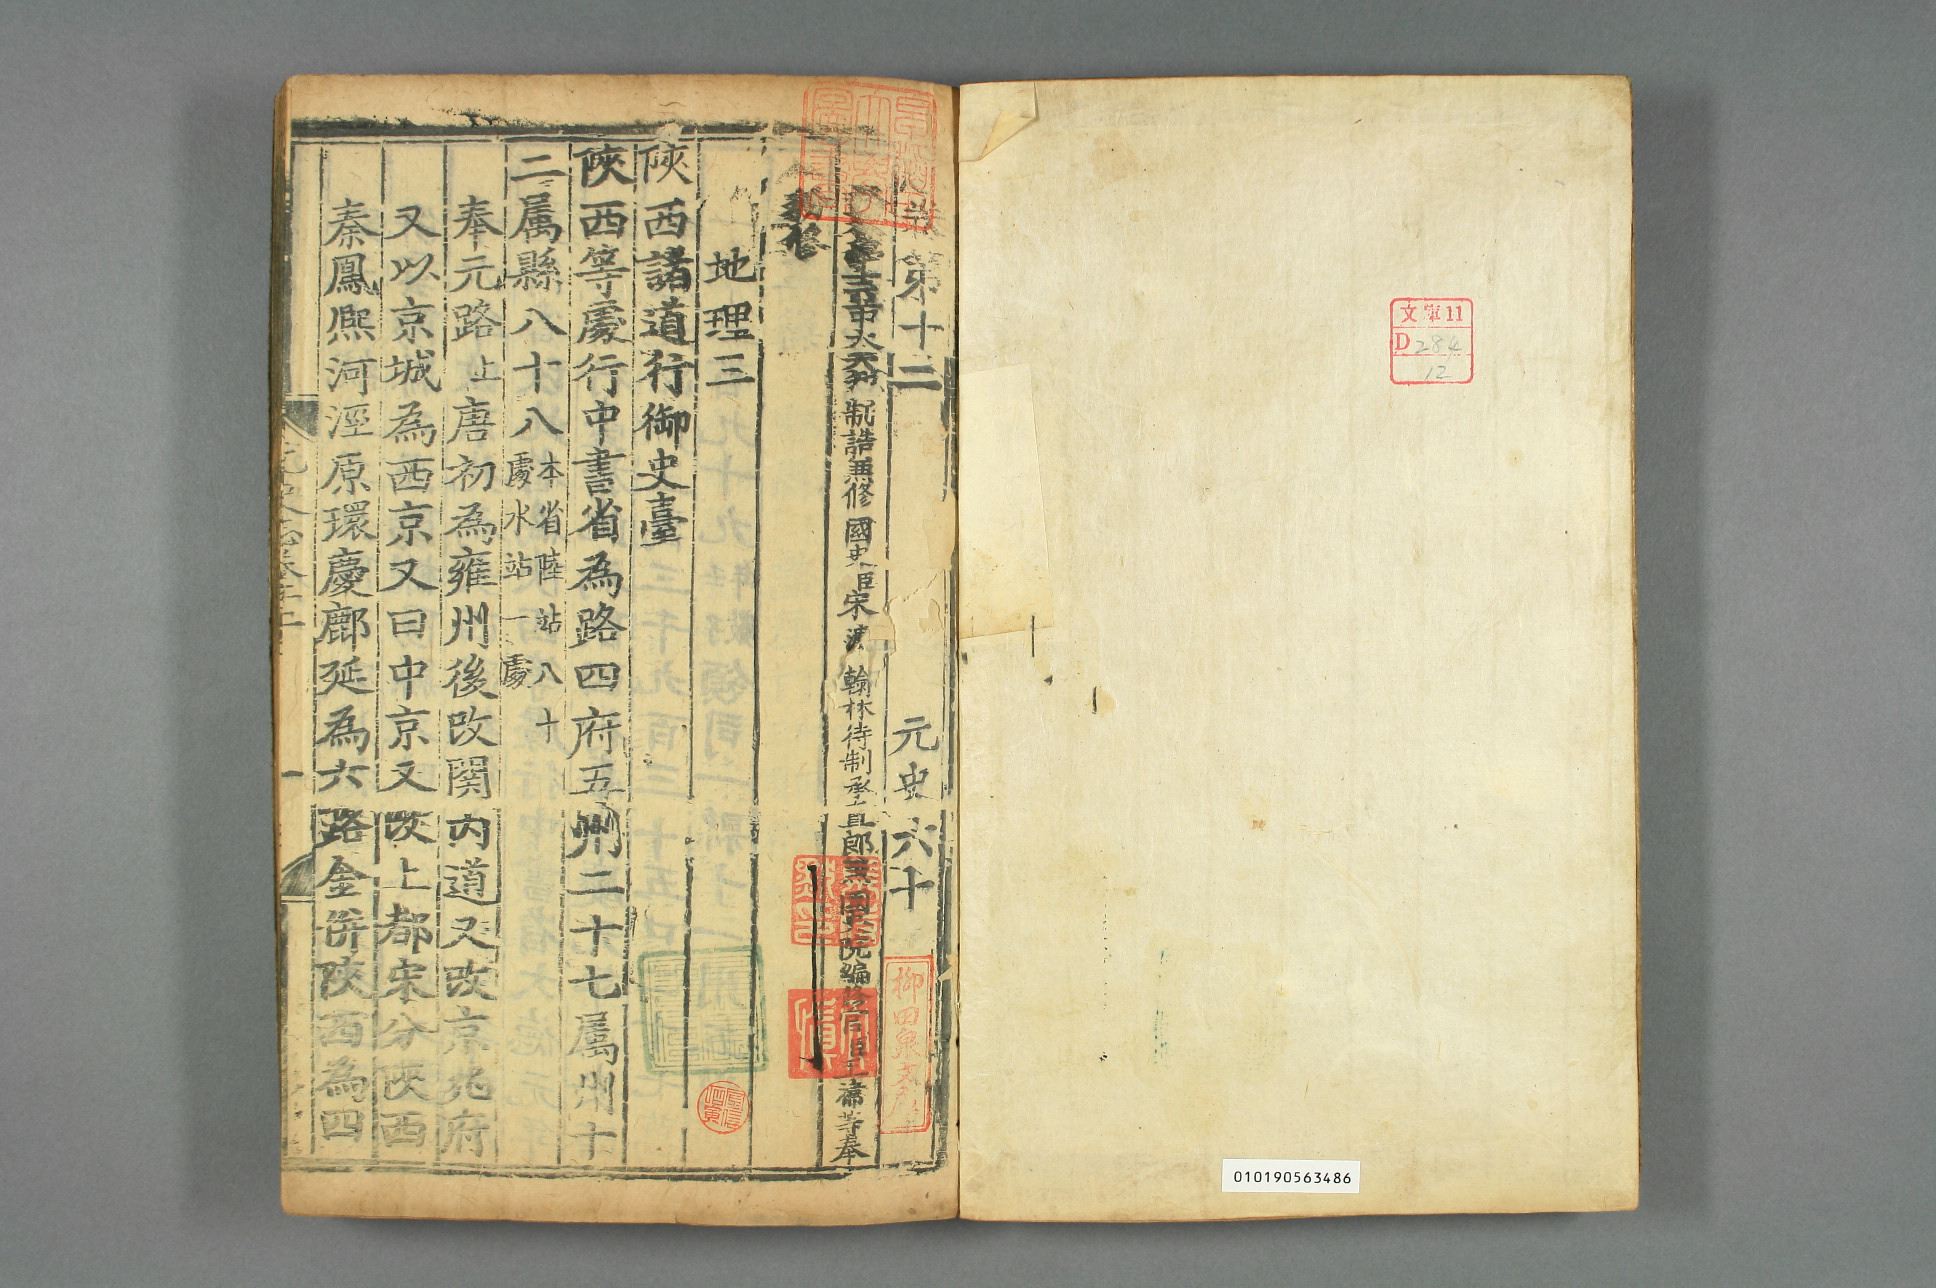 文庫11
D 284
12
010190563486
志第十二 元史六十
制誥兼修國史臣宋濂 翰林待制承直郎兼國史院編修官臣王禕等奉
勑修
地理三
陜西諸道行御史臺
陜西等處行中書省為路四府五州二十七属州十
二属縣八十八
本省陸站八十
處水站一處
奉元路上唐初為雍州後改関内道又改京兆府
又以京城為西京又曰中京又改上都宋分陜西
秦鳳熈河涇原環慶鄜延為六路金併陜西為四
元史志卷十二
一
柳田泉文庫